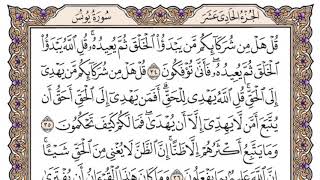 الجزء الحادي عشر
سورة يونس
قُلْ هَلْ مِن شُرَكَآئِكُم مَّن يَبْدَؤُا۟ ٱلْخَلْقَ ثُمَّ يُعِيدُهُۥ ۚ قُلِ ٱللَّهُ يَبْدَؤُا۟
ٱلْخَلْقَ ثُمَّ يُعِيدُهُۥ ۖ فَأَنَّىٰ تُؤْفَكُونَ ٣٤ قُلْ هَلْ مِن شُرَكَآئِكُم مَّن يَهْدِىٓ
إِلَى ٱلْحَقِّ ۚ قُلِ ٱللَّهُ يَهْدِى لِلْحَقِّ ۗ أَفَمَن يَهْدِىٓ إِلَى ٱلْحَقِّ أَحَقُّ أَن
يُتَّبَعَ أَمَّن لَّا يَهِدِّىٓ إِلَّآ أَن يُهْدَىٰ ۖ فَمَا لَكُمْ كَيْفَ تَحْكُمُونَ ٣٥
وَمَا يَتَّبِعُ أَكْثَرُهُمْ إِلَّا ظَنًّا ۚ إِنَّ ٱلظَّنَّ لَا يُغْنِى مِنَ ٱلْحَقِّ شَيْـًٔا ۚ
إِنَّ ٱللَّهَ عَلِيمٌۢ بِمَا يَفْعَلُونَ ٣٦ وَمَا كَانَ هَٰذَا ٱلْقُرْءَانُ أَن يُفْتَرَىٰ